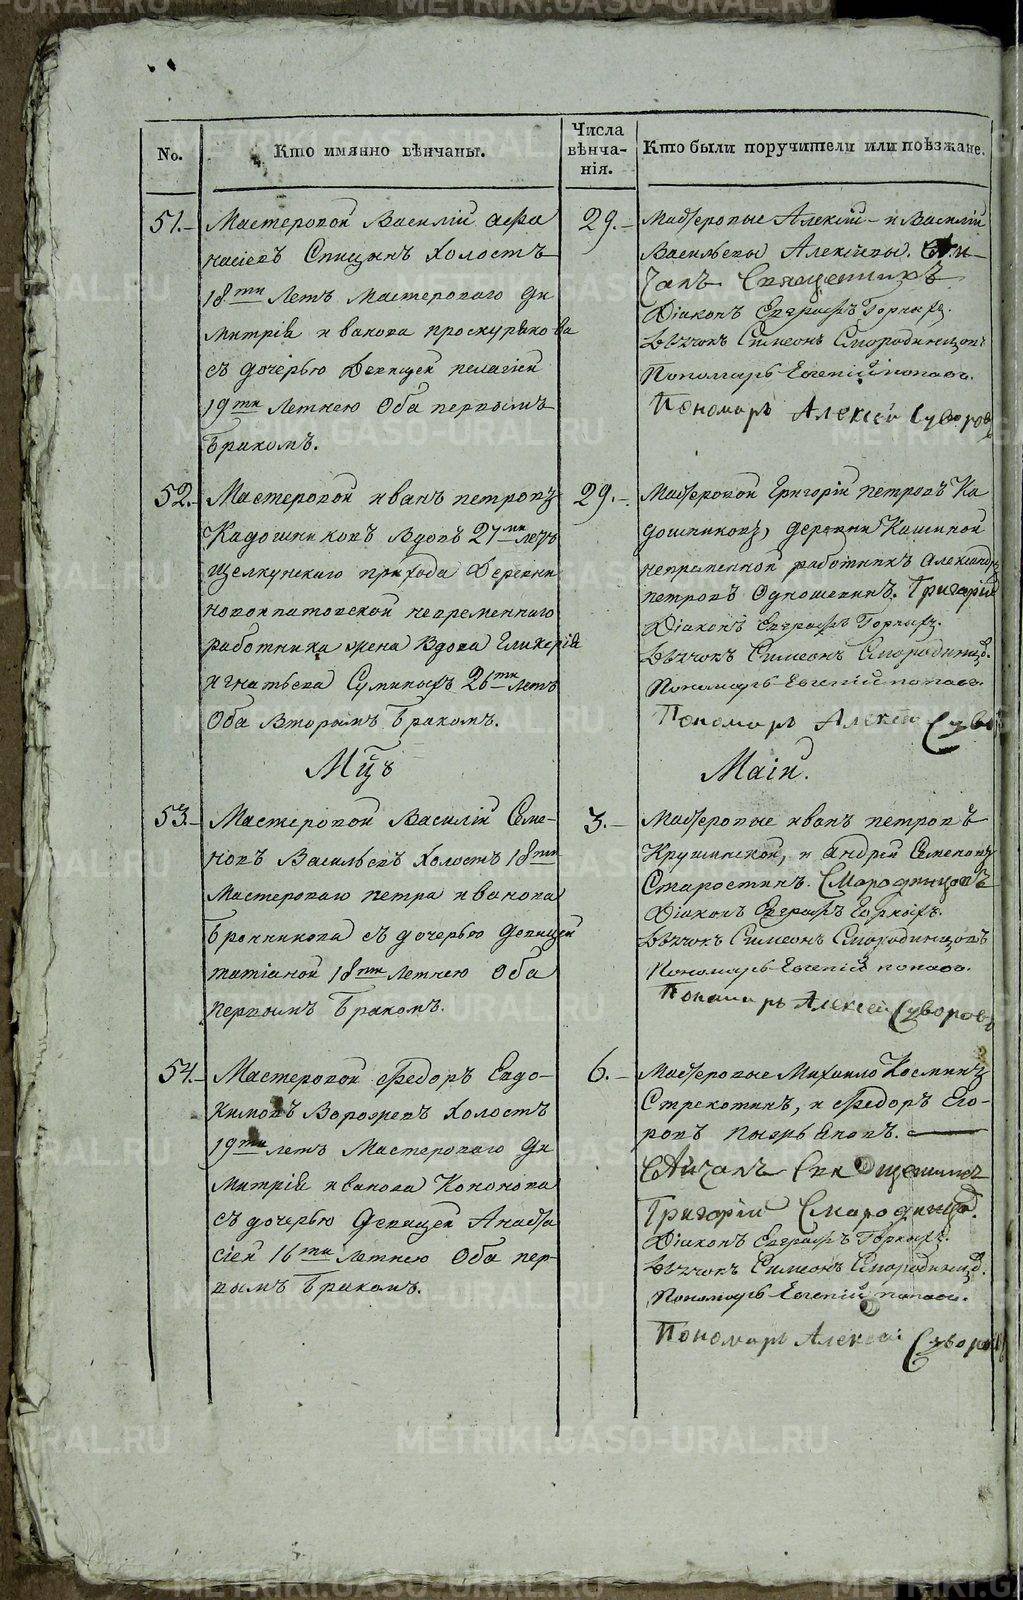 No.
Кто имянно вѣнчаны.
Числа
вѣнча-
нія.
Кто были поручители или поѣзжане.
51.-
Мастеровой Василій Афа
насіевъ Спицынъ Холостъ
18ти Летъ Мастероваго Ди
митрія иванова проскурякова
съ дочерью Девицей пелагіей
19ти Летнею Оба первымъ
Бракомъ.
29.-
Мастеровые Алексій - и Василій
Васильевы Алексіевы.
Священникъ
Діаконъ Евграфъ Горныхъ.
Дьячокъ Симеонъ Смородинцовъ
Пономарь Евгеній поповъ.
Пономарь Алексей Суворовъ
52.-
Мастеровой иванъ петровъ
Кадошниковъ Вдовъ 27ми летъ
Щелкунскаго прихода Деревни
новоипатовской непременнаго
работника жена Вдова Гликерія
игнатьева Суминыхъ 26ти летъ
Оба Вторымъ Бракомъ.
29.-
Мастеровой Григорій петровъ Ка
дошниковъ, деревни Кашиной
непременной работникъ Александръ
петровъ Одношевинъ. Григорій
Діаконъ Евграфъ Горныхъ.
Дьячокъ Симеонъ Смородинцовъ.
Пономарь Евгеній поповъ.
Пономарь Алексей Суво
Мцъ
Маій.
53.-
Мастеровой Василій Семе-
новъ Васильевъ Холостъ 18ти
Мастероваго петра иванова
Бронникова съ дочерью девицей
татіаной 18ти Летнею Оба
первымъ Бракомъ.
3.-
Мастеровые иванъ петровъ
Крушинской, и андрей Семеновъ
Старостинъ. Смородинцовъ
Діаконъ Евграфъ Горныхъ.
Дьячокъ Симеонъ Смородинцовъ
Пономарь Евгеній поповъ.
Пономарь Алексей Суворовъ
54.-
Мастеровой Федоръ Евдо-
кимовъ Ворожевъ Холостъ
19ти летъ Мастероваго Ди
митрія иванова Кононова
съ дочерью Девицей Анаста
сіей 16ти Летнею Оба пер-
вымъ Бракомъ.
6.-
Мастеровые Михаило Косминъ
Стрекотинъ, и Федоръ Его-
ровъ
Священникъ
Григорій Смородинцо.
Діаконъ Евграфъ Горныхъ.
Дьячокъ Симеонъ Смородинцовъ.
Пономарь Евгеній поповъ.
Пономарь Алексей Суворовъ